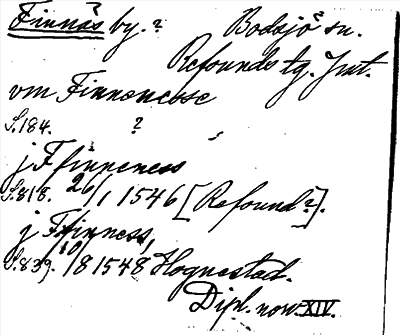 Finnäs by. ? Bodsjö sn.
Refsunds tg. Jmt.
vm Finnonesse
S. 184. ?
j Ffinneness
S. 818. 26/1 1546 [Refsund?].
j Ffinness,
S. 839. 10/8 1548 Hognestad.
Dipl. norv. XIV.